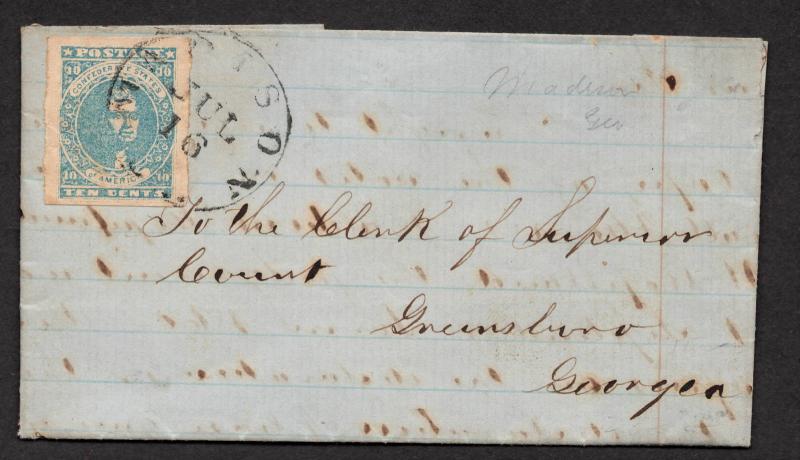 POSTAGE
10 10
CONFEDERATE STATES
OF AMERICA
10 10
TEN CENTS
MADISON
JUL
16
Madison
Geo
To the Clerk of Superior
Court
Greensboro
Georgea